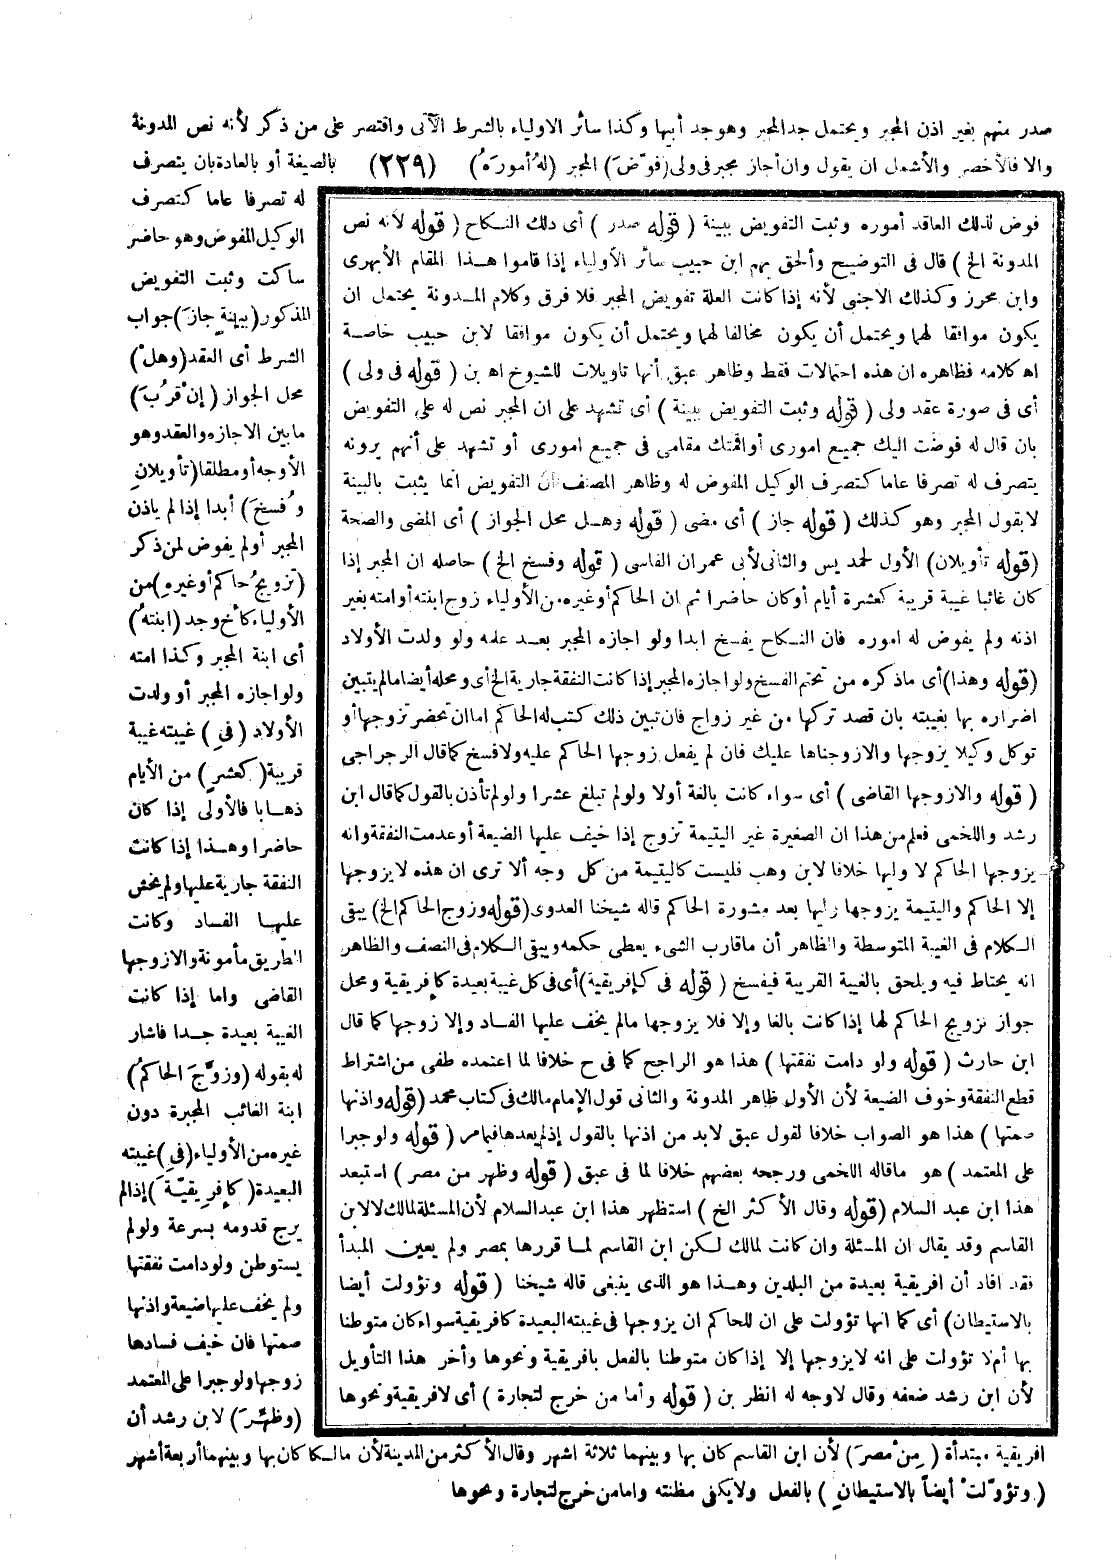 صدر منهم بغير اذن المجبر ويحتمل جد المجبر وهو جد أبيها وكذا سائر الاولياء بالشرط الآتى واقتصر على من ذكر لأنه نص المدونة
والا فالأخصر والأشمل ان يقول وان أجاز مجبر فى ولى (فوّضَ) المجبر (لهُ أمورَهُ) (٢٢٩) بالصيغة أو بالعادة بان يتصرف
له تصرفا عاما كتصرف
الوكيل المفوض وهو حاضر
ساكت وثبت التفويض
المذكور (ببينةٍ جازَ) جواب
الشرط أى العقد (وهلْ)
محل الجواز (إنْ قرُبَ)
ما بين الاجازه والعقد وهو
الأوجه أو مطلقا (تأويلانِ
وفُسخَ) أبدا إذا لم ياذن
المجبر أولم يفوض لمن ذكر
(تزويجُ حاكم أوغيرهِ) من
الأولياء كأخ وجد (ابنتهُ)
أى ابنة المجبر وكذا امته
ولو اجازه المجبر أو ولدت
الأولاد (فى) غيبته غيبة
قريبة (كعشرٍ) من الأيام
ذهابا فالأولى إذا كان
حاضرا وهذا إذا كانت
النفقة جارية عليها ولم يخش
عليها الفساد وكانت
الطريق مأمونة والا زوجها
القاضى واما إذا كانت
الغيبة بعيدة جدا فاشار
له بقوله (وزوَّجَ الحاكمُ)
ابنة الغائب المجبرة دون
غيره من الأولياء (فى) غيبته
البعيدة (كإفريقيّةَ) إذا لم
يرج قدومه بسرعة ولو لم
يستوطن ولو دامت نفقتها
ولم يخف عليها ضيعة واذنها
صمتها فان خيف فسادها
زوجها ولو جبرا على المعتمد
(وظهّرَ) لابن رشد أن
افريقية مبتدأة (مِنْ مصرَ) لأن ابن القاسم كان بها وبينهما ثلاثة اشهر وقال الأكثر من المدينة لأن مالكا كان بها وبينهما أربعة أشهر
(وتؤوّلتْ أيضاً بالاستيطانِ) بالفعل ولا يكفى مظنته واما من خرج لتجارة ونحوها
فوض لذلك العاقد أموره وثبت التفويض ببينة (قوله صدر) أى ذلك النكاح (قوله لأنه نص
المدونة الخ) قال فى التوضيح وألحق بهم ابن حبيب سائر الأولياء إذا قاموا هذا المقام الأبهرى
وابن محرز وكذلك الاجنى لأنه إذا كانت العلة تفويض المجبر فلا فرق وكلام المدونة يحتمل ان
يكون موافقا لهما ويحتمل أن يكون مخالفا لهما ويحتمل أن يكون موافقا لابن حبيب خاصة
اه كلامه فظاهره ان هذه احتمالات فقط وظاهر عبق أنها تاويلات للشيوخ اه بن (قوله فى ولى)
أى فى صورة عقد ولى (قوله وثبت التفويض ببينة) أى تشهد على ان المجبر نص له على التفويض
بان قال له فوضت اليك جميع امورى أو اقمتك مقامى فى جميع امورى أو تشهد على أنهم يرونه
يتصرف له تصرفا عاما كتصرف الوكيل المفوض له وظاهر المصنف أن التفويض انما يثبت بالبينة
لا بقول المجبر وهو كذلك (قوله جاز) أى مضى (قوله وهل محل الجواز) أى المضى والصحة
(قوله تأويلان) الأول لحمديس والثانى لأبى عمران الفاسى (قوله وفسخ الخ) حاصله ان المجبر إذا
كان غائبا غيبة قريبة كعشرة أيام أو كان حاضرا ثم ان الحاكم أوغيره من الأولياء زوج ابنته أو امته بغير
اذنه ولم يفوض له اموره فان النكاح يفسخ ابدا ولو اجازه المجبر بعد علمه ولو ولدت الأولاد
(قوله وهذا) أى ماذكره من تحتم الفسخ ولو اجازه المجبر إذا كانت النفقة جارية الخ أى ومحله أيضا مالم يتبين
اضراره بها بغيبته بان قصد تركها من غير زواج فان تبين ذلك كتب له الحاكم اما ان تحضر تزوجها أو
توكل وكيلا يزوجها والا زوجناها عليك فان لم يفعل زوجها الحاكم عليه ولا فسخ كما قال الرجراجى
(قوله والا زوجها القاضى) أى سواء كانت بالغة أولا ولو لم تبلغ عشرا ولو لم تأذن بالقول كما قال ابن
رشد واللخمى فعلم من هذا ان الصغيرة غير اليتيمة تزوج إذا خيف عليها الضيعة أو عدمت النفقة وانه
يزوجها الحاكم لا وليها خلافا لابن وهب فليست كاليتيمة من كل وجه ألا ترى ان هذه لا يزوجها
إلا الحاكم واليتيمة يزوجها وليها بعد مشورة الحاكم قاله شيخنا العدوى (قوله وزوج الحاكم الخ) يبقى
الكلام فى الغيبة المتوسطة والظاهر أن ماقارب الشىء يعطى حكمه ويبقى الكلام فى النصف والظاهر
انه يحتاط فيه ويلحق بالغيبة القريبة فيفسخ (قوله فى كإفريقية) أى فى كل غيبة بعيدة كإفريقية ومحل
جواز تزويج الحاكم لها إذا كانت بالغا وإلا فلا يزوجها مالم يخف عليها الفساد وإلا زوجها كما قال
ابن حارث (قوله ولو دامت نفقتها) هذا هو الراجح كما فى ح خلافا لما اعتمده طفى من اشتراط
قطع النفقة وخوف الضيعة لأن الأول ظاهر المدونة والثانى قول الإمام مالك فى كتاب محمد (قوله واذنها
صمتها) هذا هو الصواب خلافا لقول عبق لابد من اذنها بالقول إذ لم يعدها فيما مر (قوله ولو جبرا
على المعتمد) هو ماقاله اللخمى ورجحه بعضهم خلافا لما فى عبق (قوله وظهر من مصر) استبعد
هذا ابن عبد السلام (قوله وقال الأكثر الخ) استظهر هذا ابن عبد السلام لأن المسئلة لمالك لا لابن
القاسم وقد يقال ان المسئلة وان كانت لمالك لكن ابن القاسم لما قررها بمصر ولم يعين المبدأ
فقد افاد أن افريقية بعيدة من البلدين وهذا هو الذى ينبغى قاله شيخنا (قوله وتؤولت أيضا
بالاستيطان) أى كما انها تؤولت على ان للحاكم ان يزوجها فى غيبته البعيدة كافريقية سواء كان متوطنا
بها أم لا تؤولت على انه لا يزوجها إلا إذا كان متوطنا بالفعل بافريقية ونحوها وأخر هذا التأويل
لأن ابن رشد ضعفه وقال لاوجه له انظر بن (قوله وأما من خرج لتجارة) أى لافريقية ونحوها